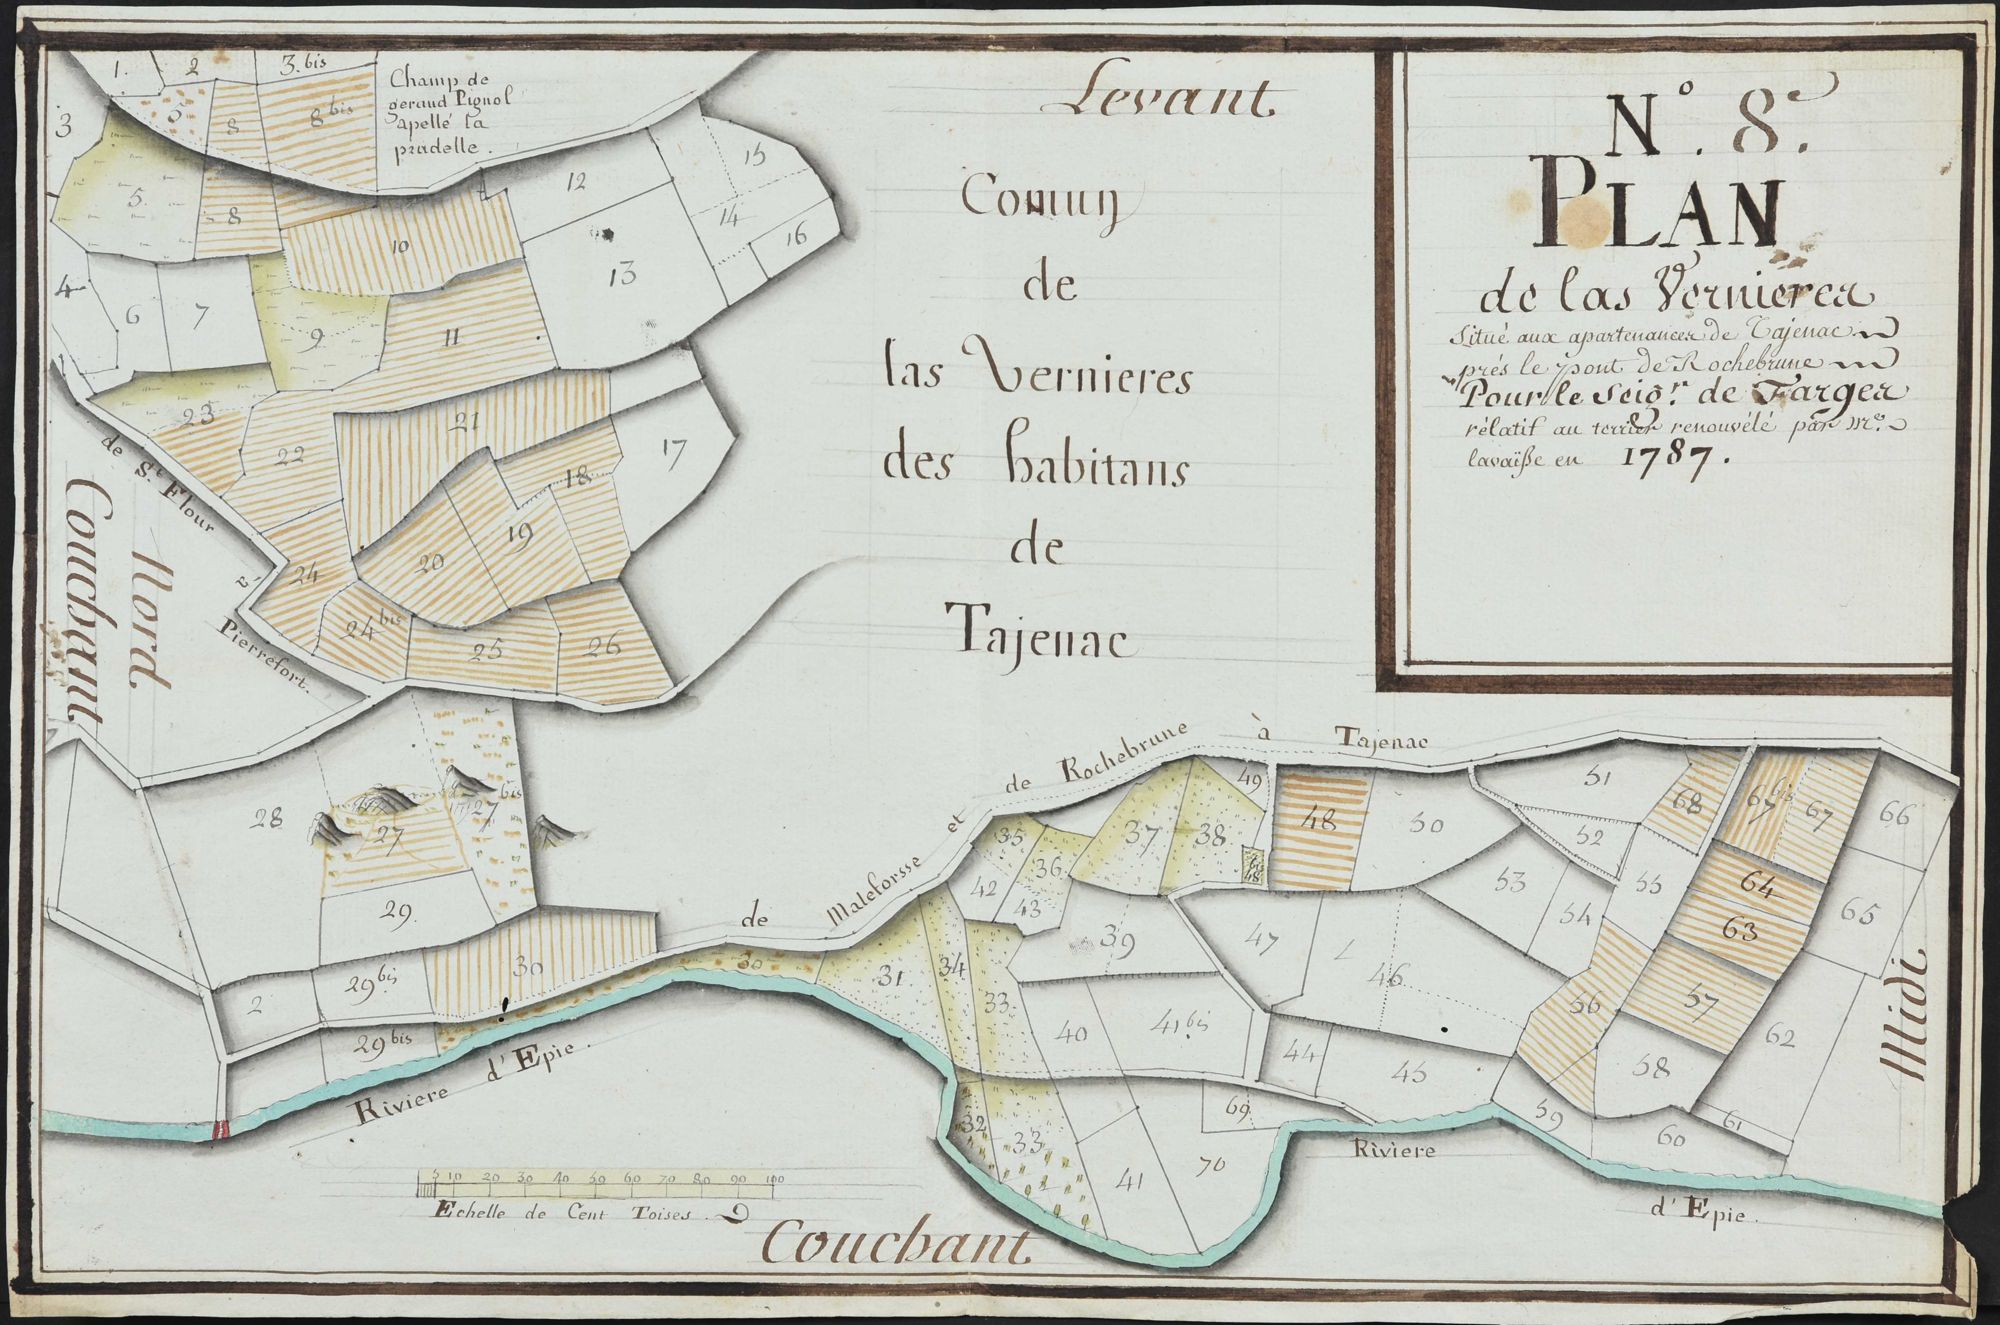 N.º 8.e
PLAN
de las Vernieres
Situé aux apartenances de Tajenac
prés le pont de Rochebrune
Pour le Seig.r de Farges
rélatif au terrier renouvélé par Mr.
lavaïsse en 1787.
Levant
Comun
de
las Vernieres
des habitans
de
Tajenac
Champ de
geraud Pignol
apellé la
pradelle.
1.
2
3.bis
3
5
8
8bis
5
8
4
6
7
9
10
11
12
13
14
15
16
17
18
19
20
21
22
23
24
24bis
25
26
de St. Flour
à
Pierrefort.
Nord
Couchant
28
27
27bis
29.
29bis
30
2
29bis
30
de
Maleforsse
et
de Rochebrune
à
Tajenac
31
34
33
32
33
35
36
37
38
49
42
43
39
40
41bis
41
48
50
47
46
44
45
51
52
53
54
55
56
57
58
59
60
61
62
63
64
65
66
67
67bis
68
69
70
Midi
Riviere d'Epie.
Riviere
d'Epie.
5 10 20 30 40 50 60 70 80 90 100
Echelle de Cent Toises.
Couchant